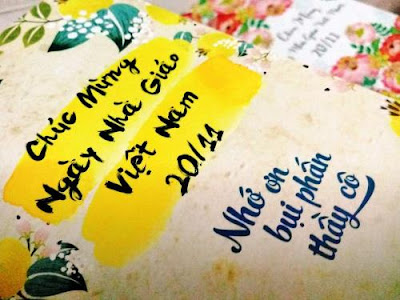 Chúc Mừng
Ngày Nhà Giáo
Việt Nam
20/11
Nhớ ơn
bụi phấn
thầy cô
20/11